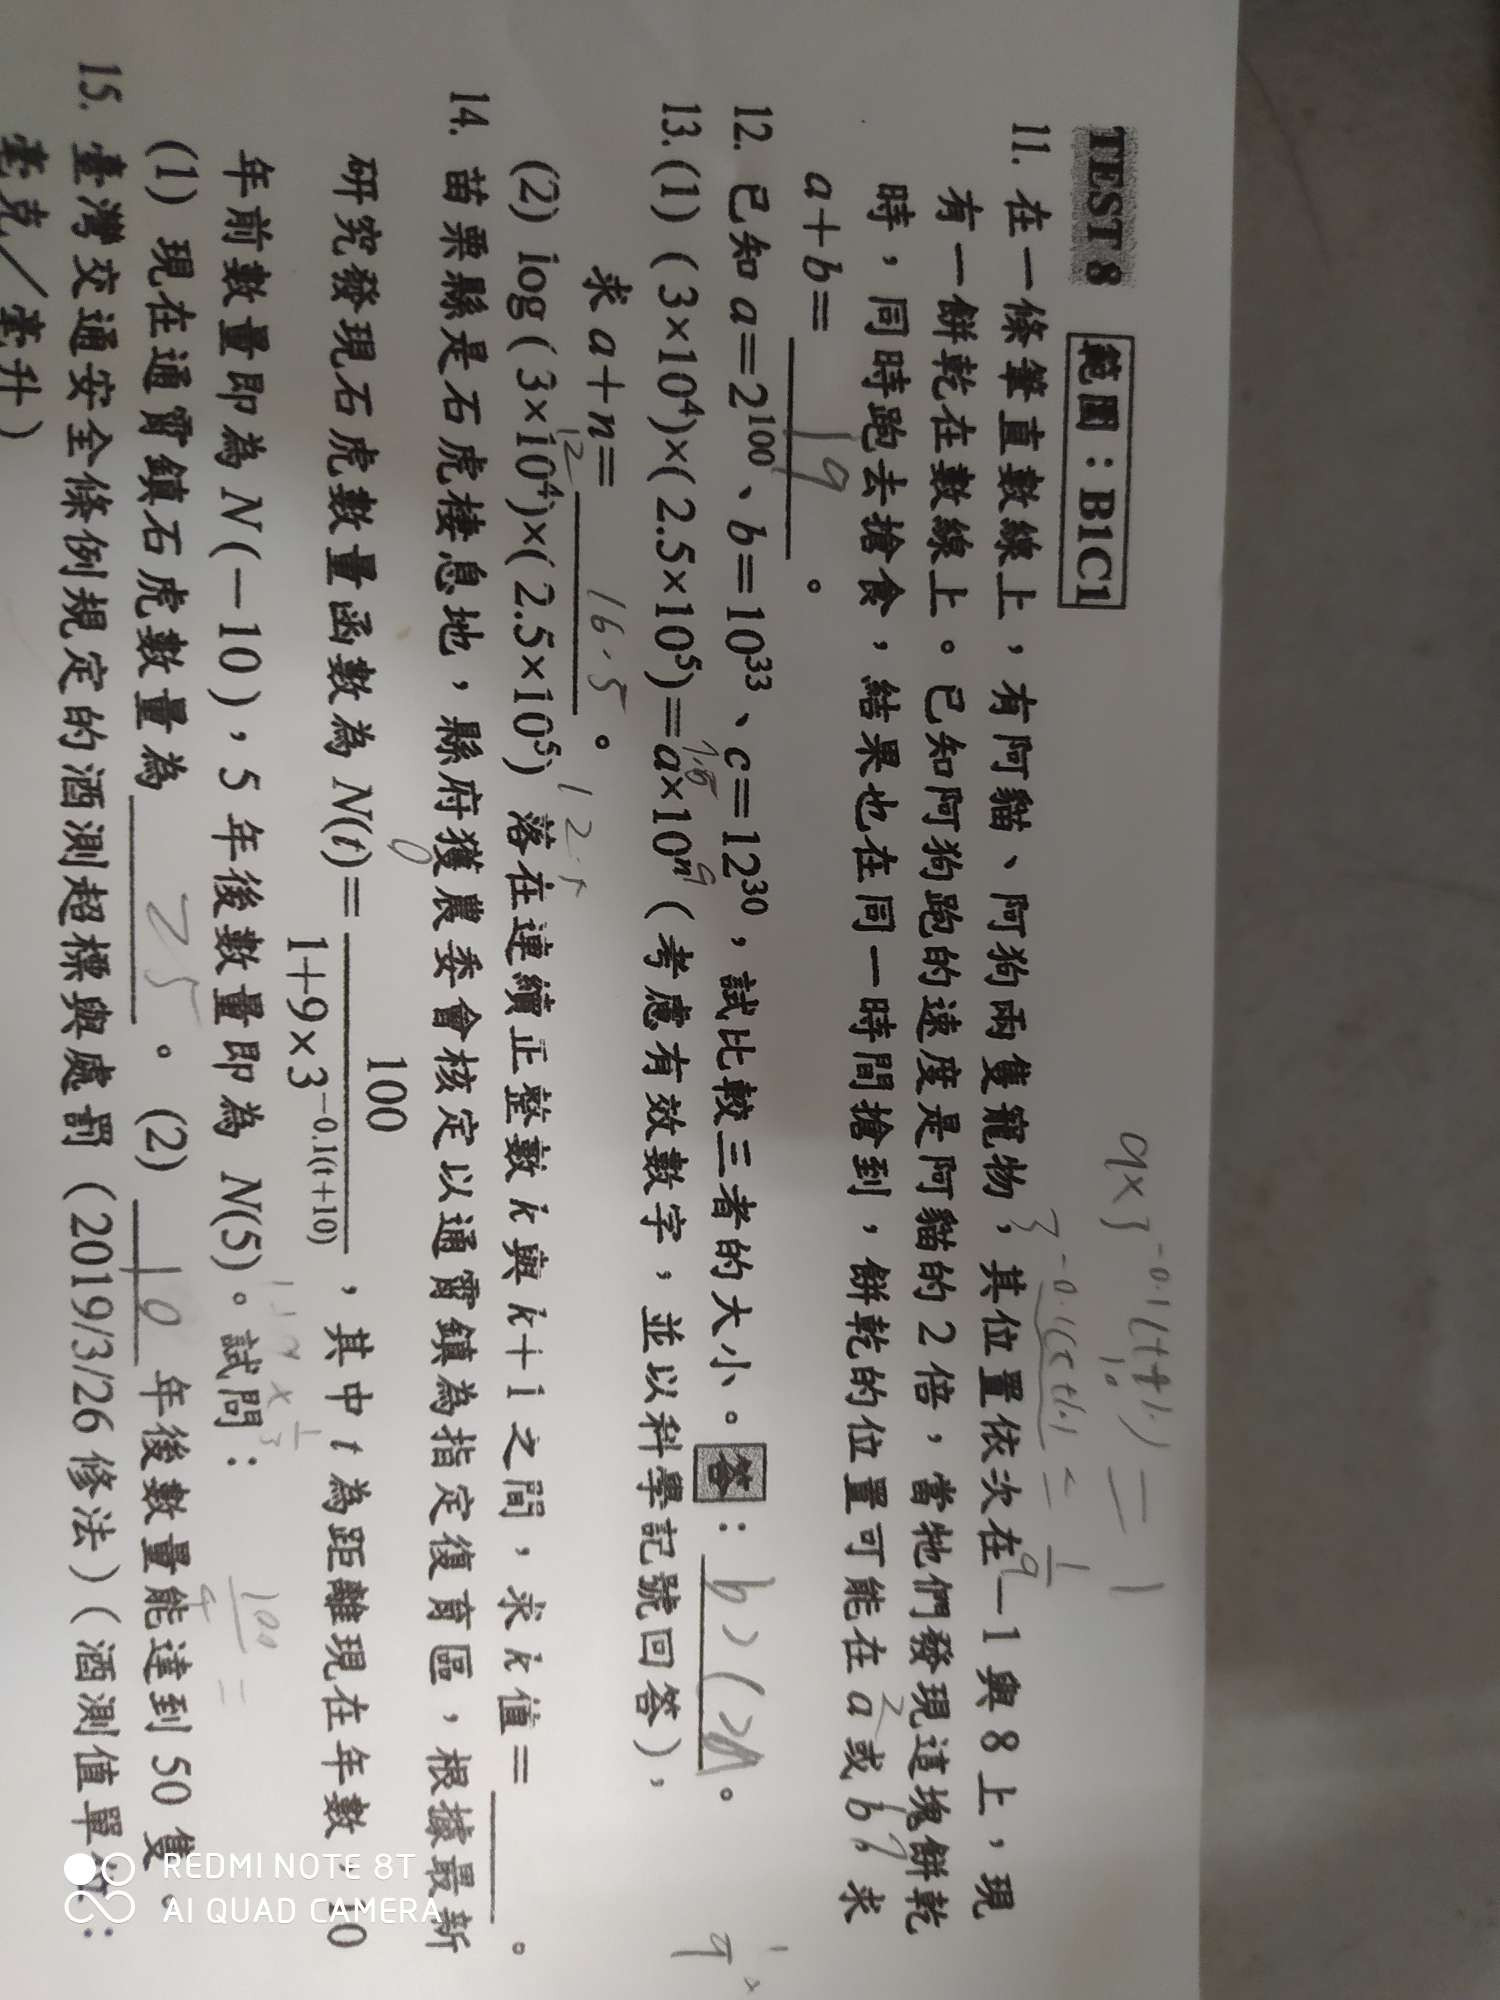 TEST 8 範圍：B1C1
11. 在一條筆直數線上，有阿貓、阿狗兩隻寵物，其位置依次在－1與8上，現
有一餅乾在數線上。已知阿狗跑的速度是阿貓的2倍，當牠們發現這塊餅乾
時，同時跑去搶食，結果也在同一時間搶到，餅乾的位置可能在a或b，求
a＋b＝ 19 。
12. 已知a＝2¹⁰⁰、b＝10³³、c＝12³⁰，試比較三者的大小。答：b>c>a。
13.(1) (3×10⁴)×(2.5×10⁵)＝a×10ⁿ（考慮有效數字，並以科學記號回答），
求a＋n＝ 16.5 。
(2) log(3×10⁴)×(2.5×10⁵) 落在連續正整數k與k＋1之間，求k值＝ 。
14. 苗栗縣是石虎棲息地，縣府獲農委會核定以通霄鎮為指定復育區，根據最新
研究發現石虎數量函數為N(t)＝100/(1＋9×3^(−0.1(t＋10)))，其中t為距離現在年數，10
年前數量即為N(－10)，5年後數量即為N(5)。試問：
(1) 現在通霄鎮石虎數量為 25 。(2) 10 年後數量能達到50隻。
15. 臺灣交通安全條例規定的酒測超標與處罰（2019/3/26修法）（酒測值單位：
毫克／毫升）
9×3^(-0.1(t+10)) = 1
REDMI NOTE 8T
AI QUAD CAMERA